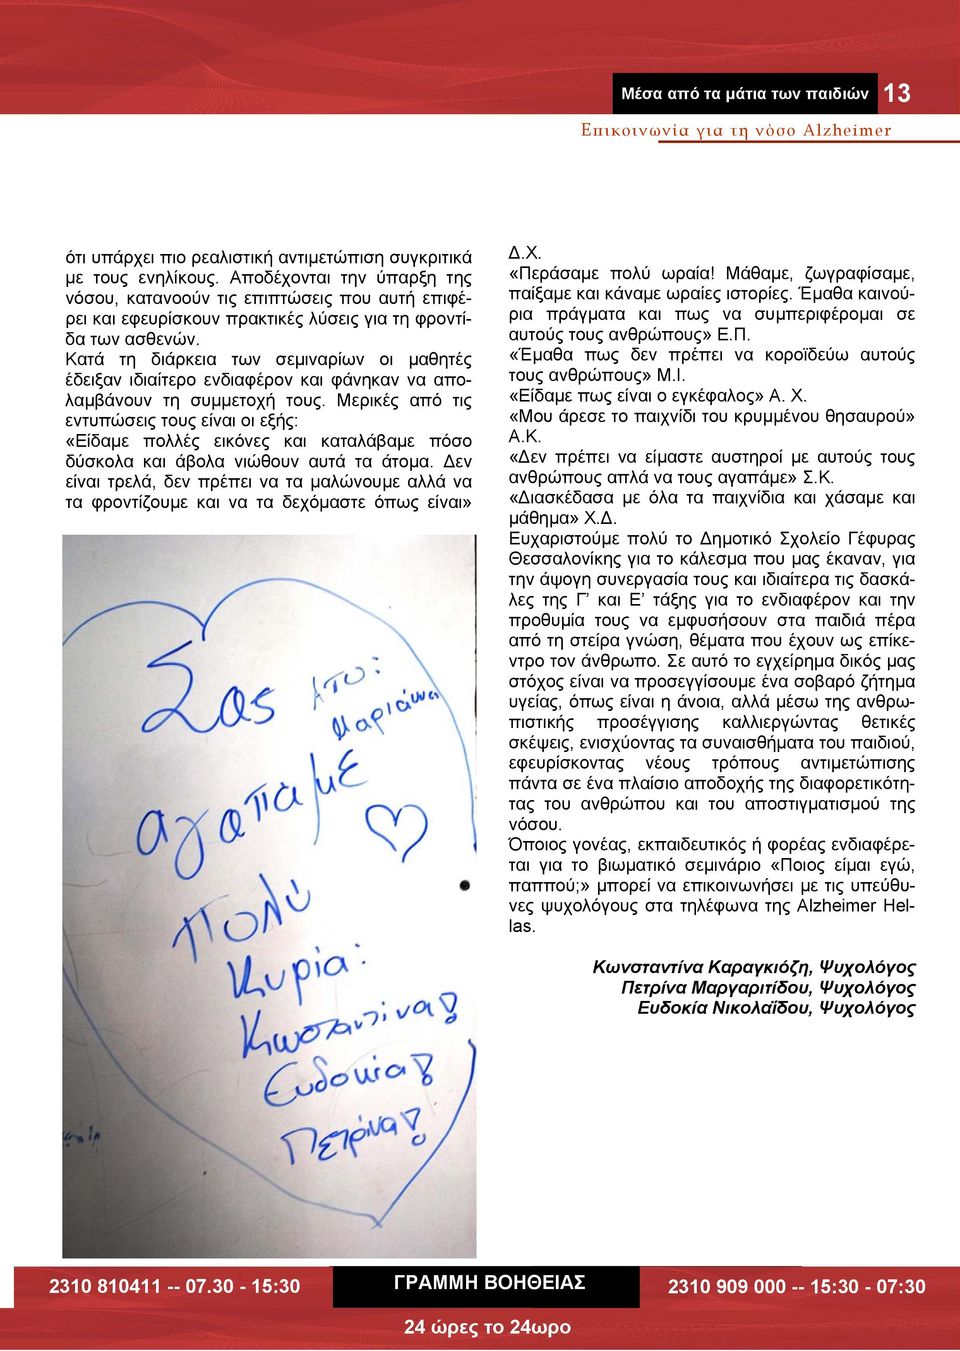 Μέσα από τα μάτια των παιδιών 13
Επικοινωνία για τη νόσο Alzheimer
ότι υπάρχει πιο ρεαλιστική αντιμετώπιση συγκριτικά
με τους ενηλίκους. Αποδέχονται την ύπαρξη της
νόσου, κατανοούν τις επιπτώσεις που αυτή επιφέ-
ρει και εφευρίσκουν πρακτικές λύσεις για τη φροντί-
δα των ασθενών.
Κατά τη διάρκεια των σεμιναρίων οι μαθητές
έδειξαν ιδιαίτερο ενδιαφέρον και φάνηκαν να απο-
λαμβάνουν τη συμμετοχή τους. Μερικές από τις
εντυπώσεις τους είναι οι εξής:
«Είδαμε πολλές εικόνες και καταλάβαμε πόσο
δύσκολα και άβολα νιώθουν αυτά τα άτομα. Δεν
είναι τρελά, δεν πρέπει να τα μαλώνουμε αλλά να
τα φροντίζουμε και να τα δεχόμαστε όπως είναι»
Σας
Από:
Μαριάννα
αγαπάμε
πολύ
Κυρία:
Κωσταντίνα!
Ευδοκία!
Πετρίνα!
Δ.Χ.
«Περάσαμε πολύ ωραία! Μάθαμε, ζωγραφίσαμε,
παίξαμε και κάναμε ωραίες ιστορίες. Έμαθα καινού-
ρια πράγματα και πως να συμπεριφέρομαι σε
αυτούς τους ανθρώπους» Ε.Π.
«Έμαθα πως δεν πρέπει να κοροϊδεύω αυτούς
τους ανθρώπους» Μ.Ι.
«Είδαμε πως είναι ο εγκέφαλος» Α. Χ.
«Μου άρεσε το παιχνίδι του κρυμμένου θησαυρού»
Α.Κ.
«Δεν πρέπει να είμαστε αυστηροί με αυτούς τους
ανθρώπους απλά να τους αγαπάμε» Σ.Κ.
«Διασκέδασα με όλα τα παιχνίδια και χάσαμε και
μάθημα» Χ.Δ.
Ευχαριστούμε πολύ το Δημοτικό Σχολείο Γέφυρας
Θεσσαλονίκης για το κάλεσμα που μας έκαναν, για
την άψογη συνεργασία τους και ιδιαίτερα τις δασκά-
λες της Γ’ και Ε’ τάξης για το ενδιαφέρον και την
προθυμία τους να εμφυσήσουν στα παιδιά πέρα
από τη στείρα γνώση, θέματα που έχουν ως επίκε-
ντρο τον άνθρωπο. Σε αυτό το εγχείρημα δικός μας
στόχος είναι να προσεγγίσουμε ένα σοβαρό ζήτημα
υγείας, όπως είναι η άνοια, αλλά μέσω της ανθρω-
πιστικής προσέγγισης καλλιεργώντας θετικές
σκέψεις, ενισχύοντας τα συναισθήματα του παιδιού,
εφευρίσκοντας νέους τρόπους αντιμετώπισης
πάντα σε ένα πλαίσιο αποδοχής της διαφορετικότη-
τας του ανθρώπου και του αποστιγματισμού της
νόσου.
Όποιος γονέας, εκπαιδευτικός ή φορέας ενδιαφέρε-
ται για το βιωματικό σεμινάριο «Ποιος είμαι εγώ,
παππού;» μπορεί να επικοινωνήσει με τις υπεύθυ-
νες ψυχολόγους στα τηλέφωνα της Alzheimer Hel-
las.
Κωνσταντίνα Καραγκιόζη, Ψυχολόγος
Πετρίνα Μαργαριτίδου, Ψυχολόγος
Ευδοκία Νικολαΐδου, Ψυχολόγος
2310 810411 -- 07.30 - 15:30 ΓΡΑΜΜΗ ΒΟΗΘΕΙΑΣ 2310 909 000 -- 15:30 - 07:30
24 ώρες το 24ωρο